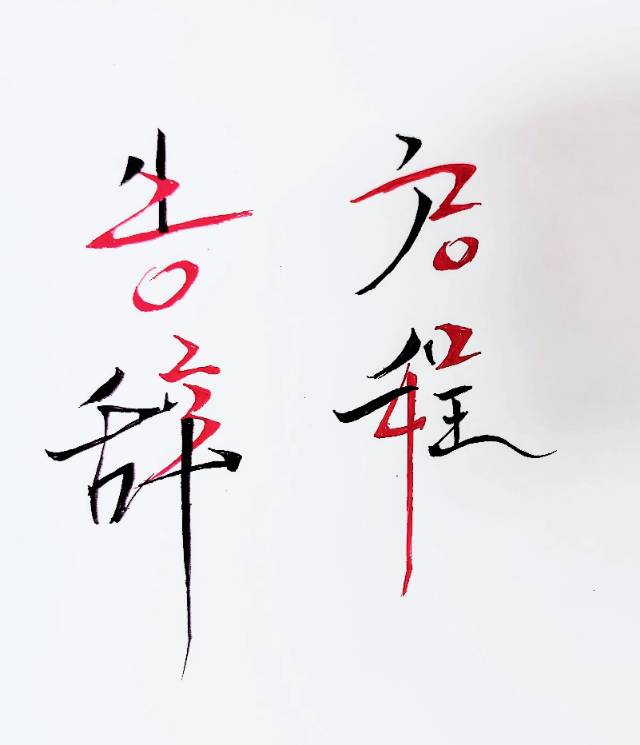 启程
告辞